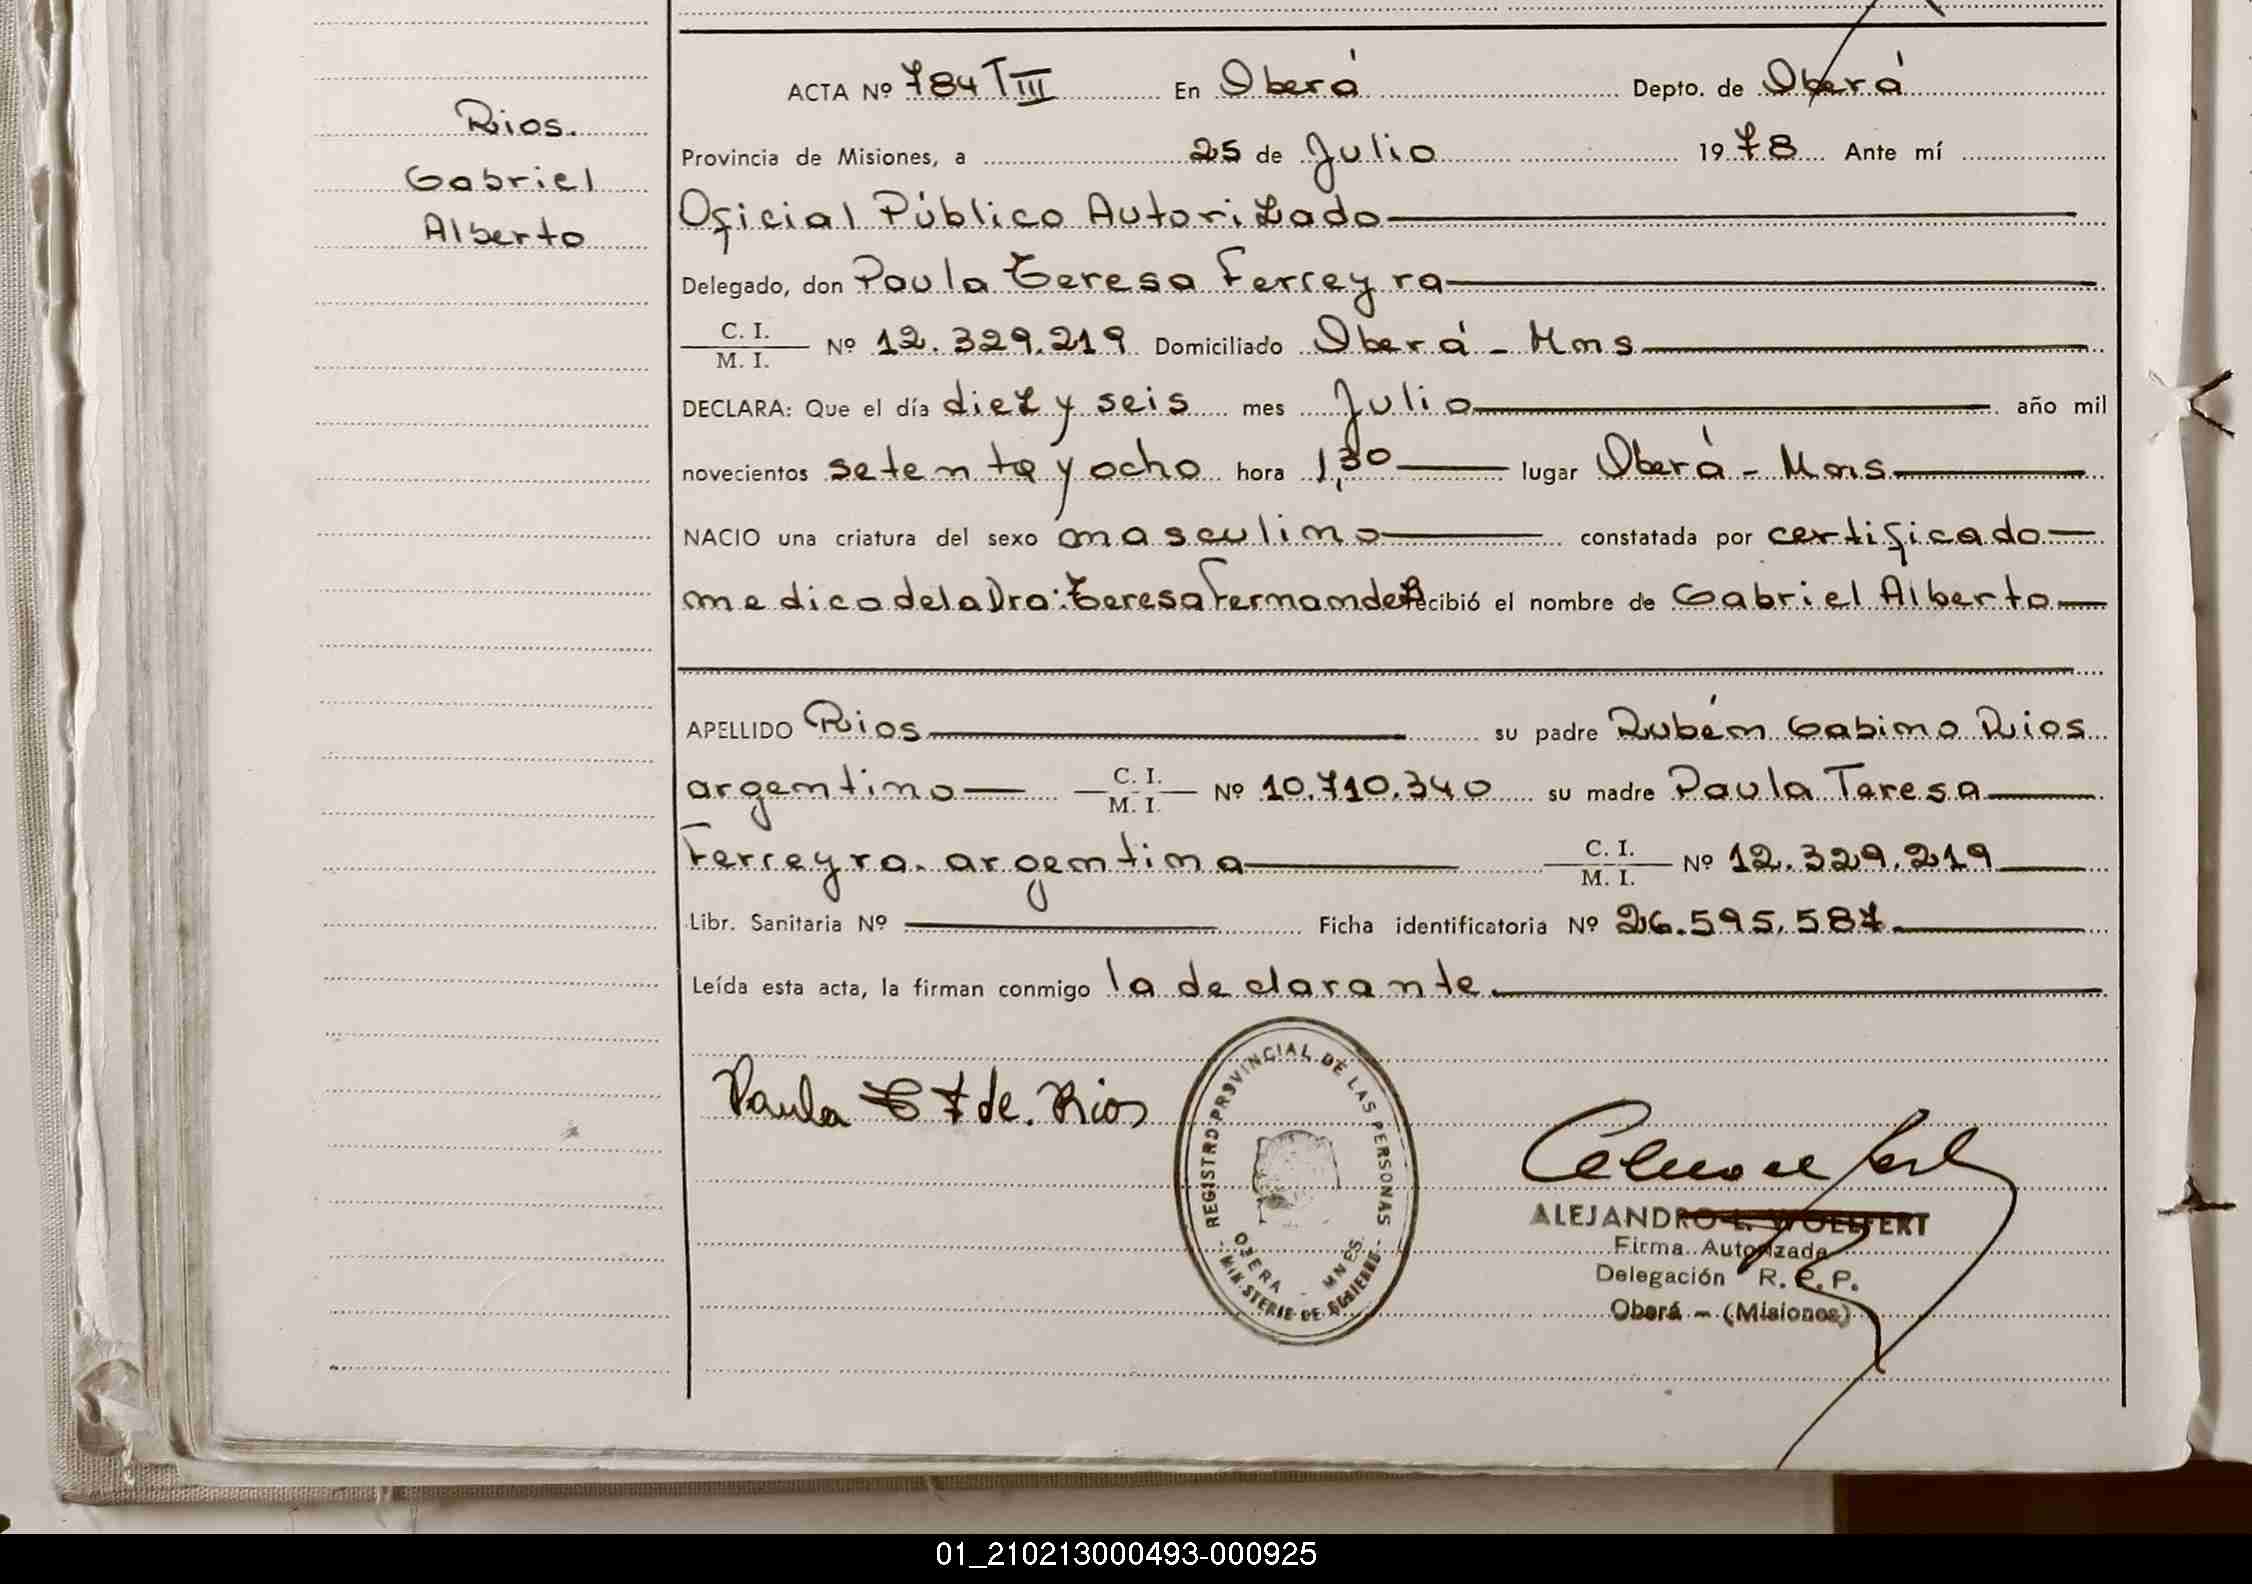 Rios.
Gabriel
Alberto
ACTA Nº 784 TIII En Oberá Depto. de Oberá
Provincia de Misiones, a 25 de Julio 1978 Ante mí
Oficial Público Autorizado
Delegado, don Paula Teresa Ferreyra
C. I.
M. I. Nº 12.329.219 Domiciliado Oberá - Mns
DECLARA: Que el día diez y seis mes Julio año mil
novecientos setenta y ocho hora 1,30 lugar Oberá - Mns
NACIO una criatura del sexo masculino constatada por certificado
medico de la Dra: Teresa Fernandez Recibió el nombre de Gabriel Alberto
APELLIDO Rios su padre Rubén Gabino Rios
argentino C. I. M. I. Nº 10.710.340 su madre Paula Teresa
Ferreyra. argentina C. I. M. I. Nº 12.329.219
Libr. Sanitaria Nº Ficha identificatoria Nº 26.595.587
Leída esta acta, la firman conmigo la declarante.
Paula T F de. Rios
REGISTRO PROVINCIAL DE LAS PERSONAS
OBERA - MNES.
- MINISTERIO DE GOBIERNO -
ALEJANDRO L. WOELFERT
Firma Autorizada
Delegación R. P. P.
Oberá - (Misiones)
01_210213000493-000925